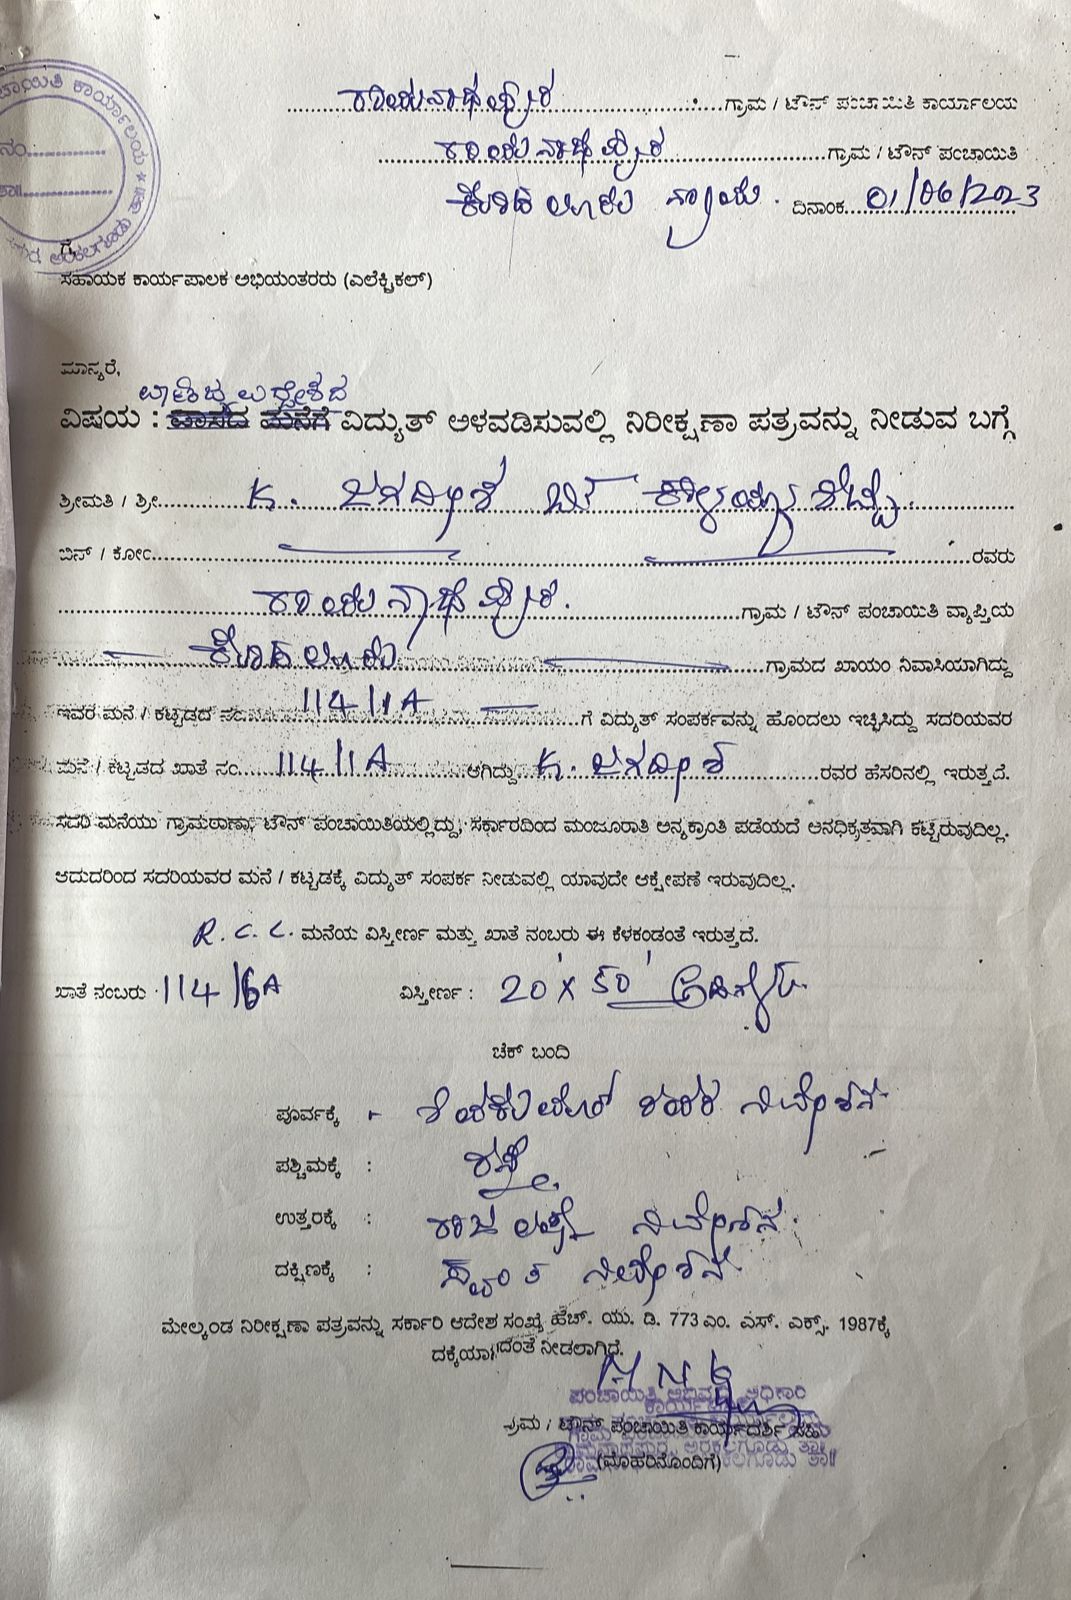 ರಾಮನಾಥಪುರ ಗ್ರಾಮ / ಟೌನ್ ಪಂಚಾಯಿತಿ ಕಾರ್ಯಾಲಯ
ರಾಮನಾಥಪುರ ಗ್ರಾಮ / ಟೌನ್ ಪಂಚಾಯಿತಿ
ದಿನಾಂಕ 01/06/2023
ಪಂಚಾಯಿತಿ ಕಾರ್ಯಾಲಯ ★ ಅರಕಲಗೂಡು
ನಂ
ಗೆ,
ಸಹಾಯಕ ಕಾರ್ಯಪಾಲಕ ಅಭಿಯಂತರರು (ಎಲೆಕ್ಟ್ರಿಕಲ್)
ಮಾನ್ಯರೆ,
ವಾಣಿಜ್ಯ ಉದ್ದೇಶದ
ವಿಷಯ : ವಾಸದ ಮನೆಗೆ ವಿದ್ಯುತ್ ಅಳವಡಿಸುವಲ್ಲಿ ನಿರೀಕ್ಷಣಾ ಪತ್ರವನ್ನು ನೀಡುವ ಬಗ್ಗೆ
ಶ್ರೀಮತಿ / ಶ್ರೀ K. ಜಗದೀಶ ಬಿನ್ ಕಾಳಯ್ಯಶೆಟ್ಟಿ.
ಬಿನ್ / ಕೋಂ ರವರು
ರಾಮನಾಥಪುರ. ಗ್ರಾಮ / ಟೌನ್ ಪಂಚಾಯಿತಿ ವ್ಯಾಪ್ತಿಯ
ಗ್ರಾಮದ ಖಾಯಂ ನಿವಾಸಿಯಾಗಿದ್ದು
ಇವರ ಮನೆ / ಕಟ್ಟಡದ ನಂ 114/1A ಗೆ ವಿದ್ಯುತ್ ಸಂಪರ್ಕವನ್ನು ಹೊಂದಲು ಇಚ್ಛಿಸಿದ್ದು ಸದರಿಯವರ
ಮನೆ / ಕಟ್ಟಡದ ಖಾತೆ ನಂ 114/1A ಆಗಿದ್ದು K. ಜಗದೀಶ ರವರ ಹೆಸರಿನಲ್ಲಿ ಇರುತ್ತದೆ.
ಸದರಿ ಮನೆಯು ಗ್ರಾಮಠಾಣಾ, ಟೌನ್ ಪಂಚಾಯಿತಿಯಲ್ಲಿದ್ದು, ಸರ್ಕಾರದಿಂದ ಮಂಜೂರಾತಿ ಅನ್ಯಕ್ರಾಂತಿ ಪಡೆಯದೆ ಅನಧಿಕೃತವಾಗಿ ಕಟ್ಟಿರುವುದಿಲ್ಲ.
ಆದುದರಿಂದ ಸದರಿಯವರ ಮನೆ / ಕಟ್ಟಡಕ್ಕೆ ವಿದ್ಯುತ್ ಸಂಪರ್ಕ ನೀಡುವಲ್ಲಿ ಯಾವುದೇ ಆಕ್ಷೇಪಣೆ ಇರುವುದಿಲ್ಲ.
R.C.C. ಮನೆಯ ವಿಸ್ತೀರ್ಣ ಮತ್ತು ಖಾತೆ ನಂಬರು ಈ ಕೆಳಕಂಡಂತೆ ಇರುತ್ತದೆ.
ಖಾತೆ ನಂಬರು : 114/6A ವಿಸ್ತೀರ್ಣ : 20' X 50' ಅಡಿಗಳು.
ಚೆಕ್ ಬಂದಿ
ಪೂರ್ವಕ್ಕೆ : ನಿವೇಶನ
ಪಶ್ಚಿಮಕ್ಕೆ : ರಸ್ತೆ.
ಉತ್ತರಕ್ಕೆ : ನಿವೇಶನ.
ದಕ್ಷಿಣಕ್ಕೆ : ಸ್ವಂತ ನಿವೇಶನ.
ಮೇಲ್ಕಂಡ ನಿರೀಕ್ಷಣಾ ಪತ್ರವನ್ನು ಸರ್ಕಾರಿ ಆದೇಶ ಸಂಖ್ಯೆ ಹೆಚ್. ಯು. ಡಿ. 773 ಎಂ. ಎಸ್. ಎಕ್ಸ್. 1987ಕ್ಕೆ
ದಂತೆ ನೀಡಲಾಗಿದೆ.
ಪಂಚಾಯಿತಿ ಅಭಿವೃದ್ಧಿ ಅಧಿಕಾರಿ
ಗ್ರಾಮ / ಟೌನ್ ಪಂಚಾಯಿತಿ ಕಾರ್ಯದರ್ಶಿ ಸಹಿ
(ಮೊಹರಿನೊಂದಿಗೆ)